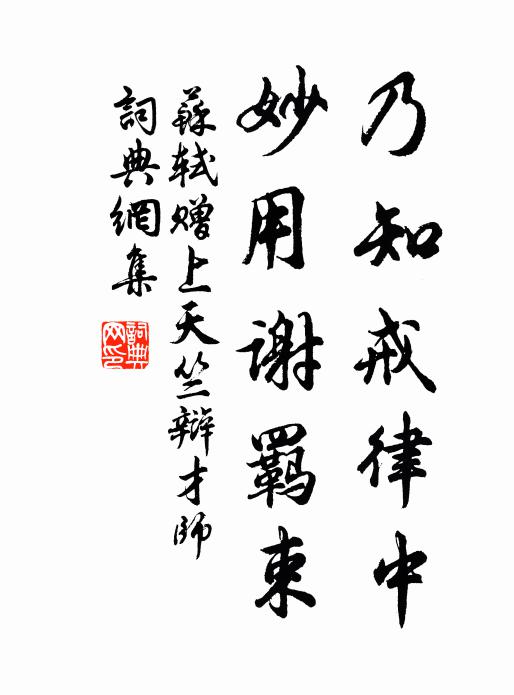 乃知戒律中
妙用謝羈束
蘇軾贈上天竺辯才師
詞典網集
詞典網印